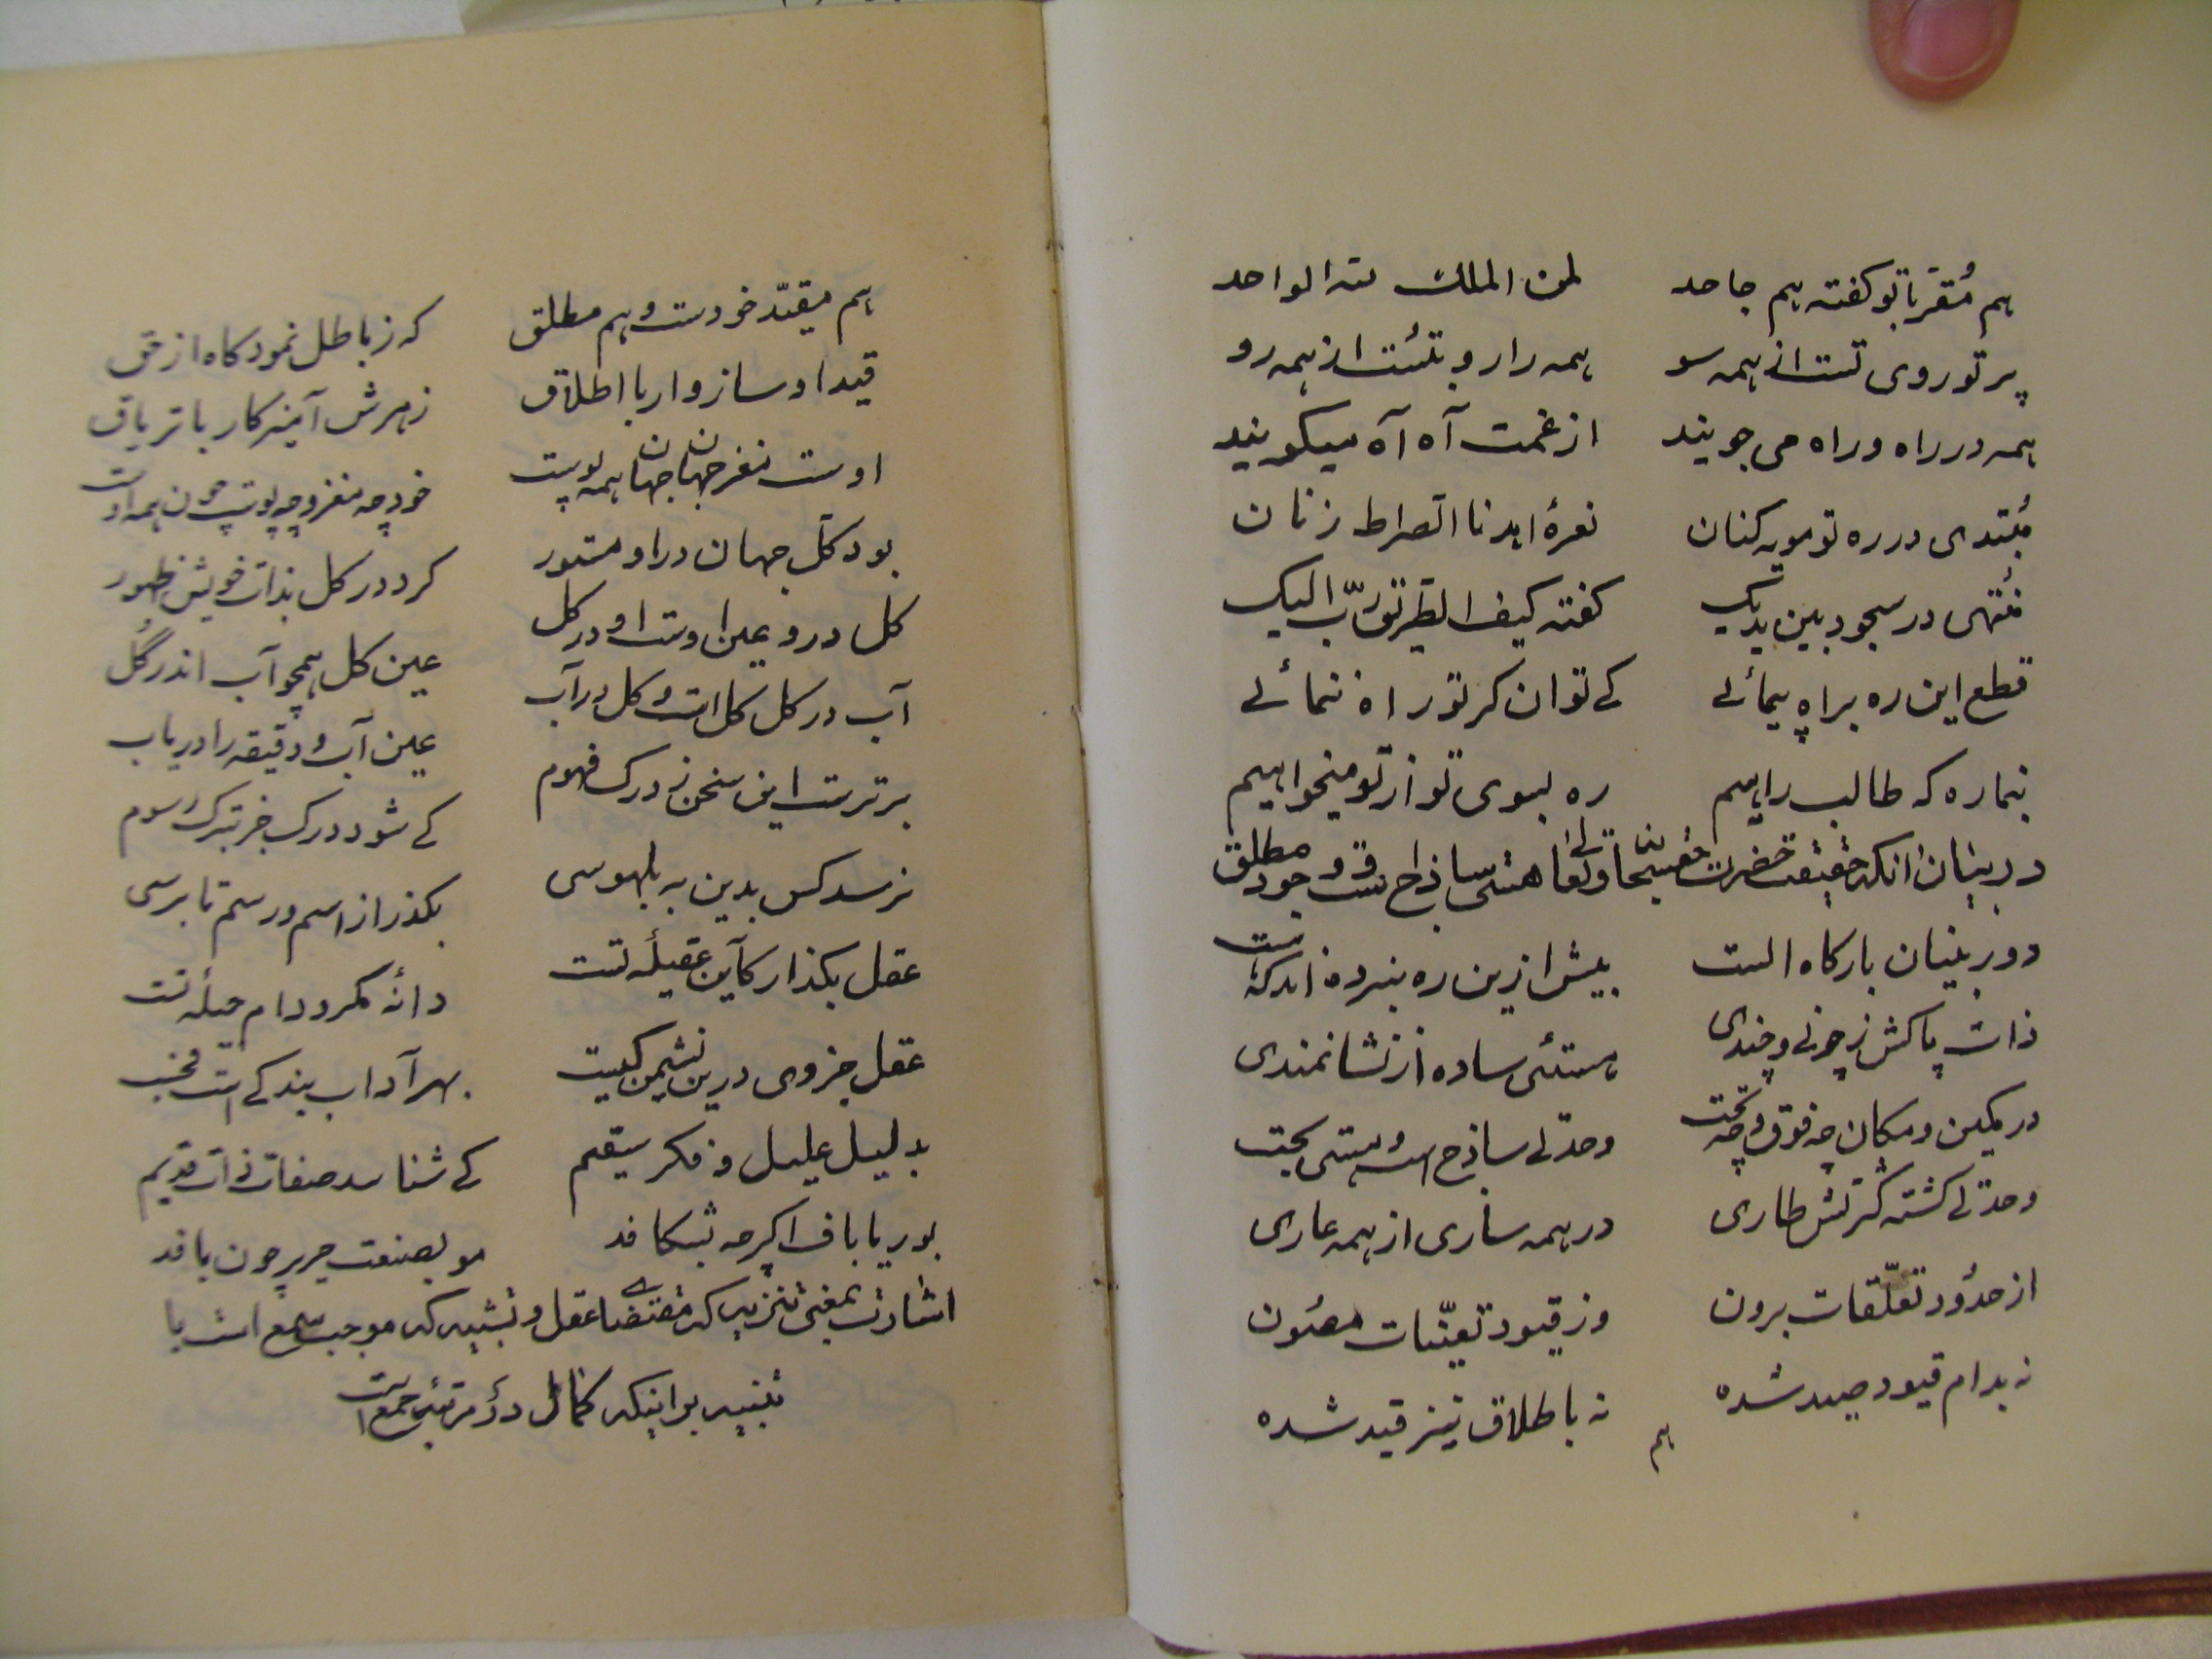 هم مُقر با تو گفته هم جاحد لمن الملک لله الواحد
پر تو روی تست از همه سو همه را رو بتست از همه رو
همه در راه و راه می جویند از غمت آه آه میگویند
مُبتدی در ره تو مویه کنان نعرهٔ اهدنا الصراط زنان
مُنتهی در سجود بین یدیک گفته کیف الطریق ربّ الیک
قطع این ره براه پیمائی کے توان گر تو راه ننمائے
بنما ره که طالب راهیم ره بسوی تو از تو میخواهیم
در بیان انکه حقیقت حضرت حق سبحانه و تعالی هستی ساذج است و وجود مطلق
دور بینان بارگاه الست بیش ازین ره نبرده اند که هست
ذات پاکش ز چونے و چندی هستئی ساده از نشانمندی
در مکین و مکان چه فوق و چه تحت وحدتے ساذج است و هستی بحت
وحدتے گشته کثرتش طاری در همه ساری از همه عاری
از حدُود تعلّقات برون وز قیود تعیّنات مصُون
نه بدام قیود صید شده نه باطلاق نیز قید شده
هم
هم مقیّد خودست و هم مطلق که ز باطل نمود گاه از حق
قید او سازوار با اطلاق زهرش آمیز کار با تریاق
اوست مغز جهان جهان همه پوست خود چه مغز و چه پوست چون همه اوست
بود کلّ جهان در او مستور کرد در کل بذات خویش ظهور
کل در و عین اوست او در کل عین کل همچو آب اندر گُل
آب در کل کل است و کل در آب عین آب و دقیقه را دریاب
برترست این سخن ز درک فهوم کے شود درک جز بترک رسوم
نرسد کس بدین به بلهوسی بگذر از اسم و رسم تا برسی
عقل بگذار کاین عقیلهٔ تست دانهٔ مکر و دام حیلهٔ تست
عقل جزوی درین نشیمن کیست بهر آداب بندگے است
بدلیل علیل و فکر سقیم کے شناسد صفات ذات قدیم
بوریا باف اگرچه بشکافد مو بصنعت حریر چون بافد
اشارت بمعنی تنزیه که مقتضای عقل و تشبیه که موجب سمع است با
تنبیه بر اینکه کمال در مرتبهٔ جمع است